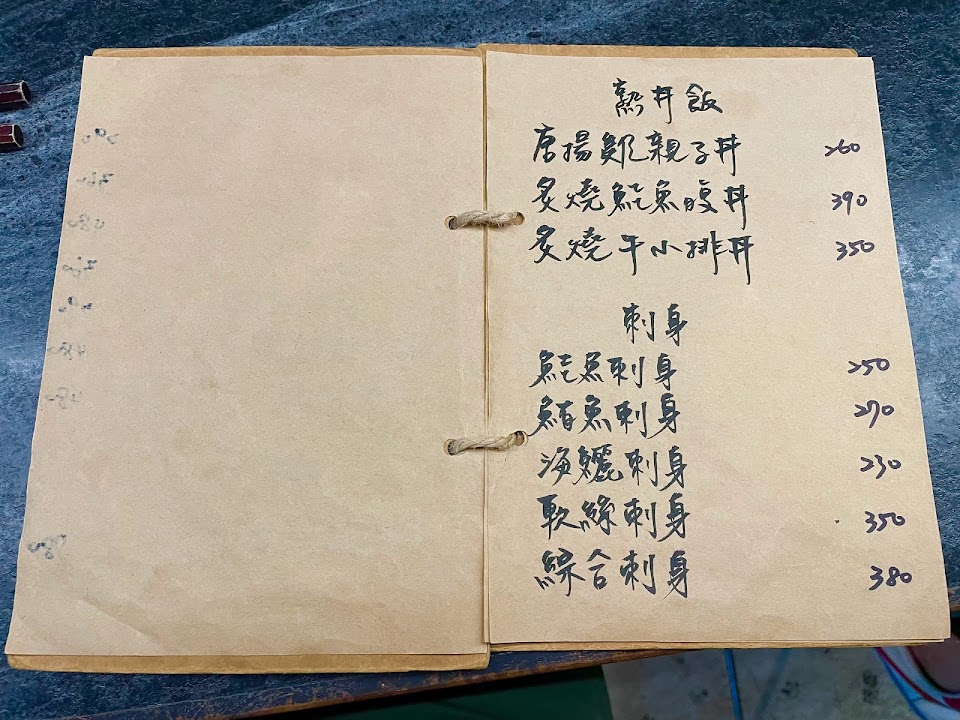 熱丼飯
唐揚雞親子丼 260
炙燒鮭魚腹丼 390
炙燒牛小排丼 350
刺身
鮭魚刺身 250
鮪魚刺身 270
海鱺刺身 230
軟絲刺身 350
綜合刺身 380